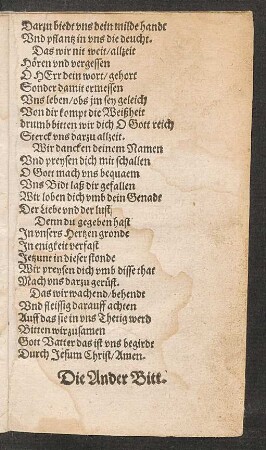 Darzu biedt vns dein milde handt
Vnd pflantz in vns die deucht.
Das wir nit weit/allzeit
Hören vnd vergessen
O HErr dein wort/gehört
Sonder damit ermessen
Vns leben/obs jm sey geleich
Von dir kompt die Weißheit
drumb bitten wir dich O Gott reich
Sterck vns darzu allzeit.
Wir dancken deinem Namen
Vnd preysen dich mit schallen
O Gott mach vns bequaem
Vns Bidt laß dir gefallen
Wir loben dich vmb dein Genade
Der Liebe vnd der lust
Denn du gegeben hast
In vnsers Hertzen gronde
In enigkeit verfast
Jetzunt in dieser stonde
Wir preysen dich vmb disse that
Mach vns darzu gerüst.
Das wir wachend/behende
Vnd fleissig darauff achten
Auff das sie in vns Thetig werd
Bitten wir zusamen
Gott Vatter das ist vns begirde
Durch Jesum Christ/Amen.
Die Ander Bitt.